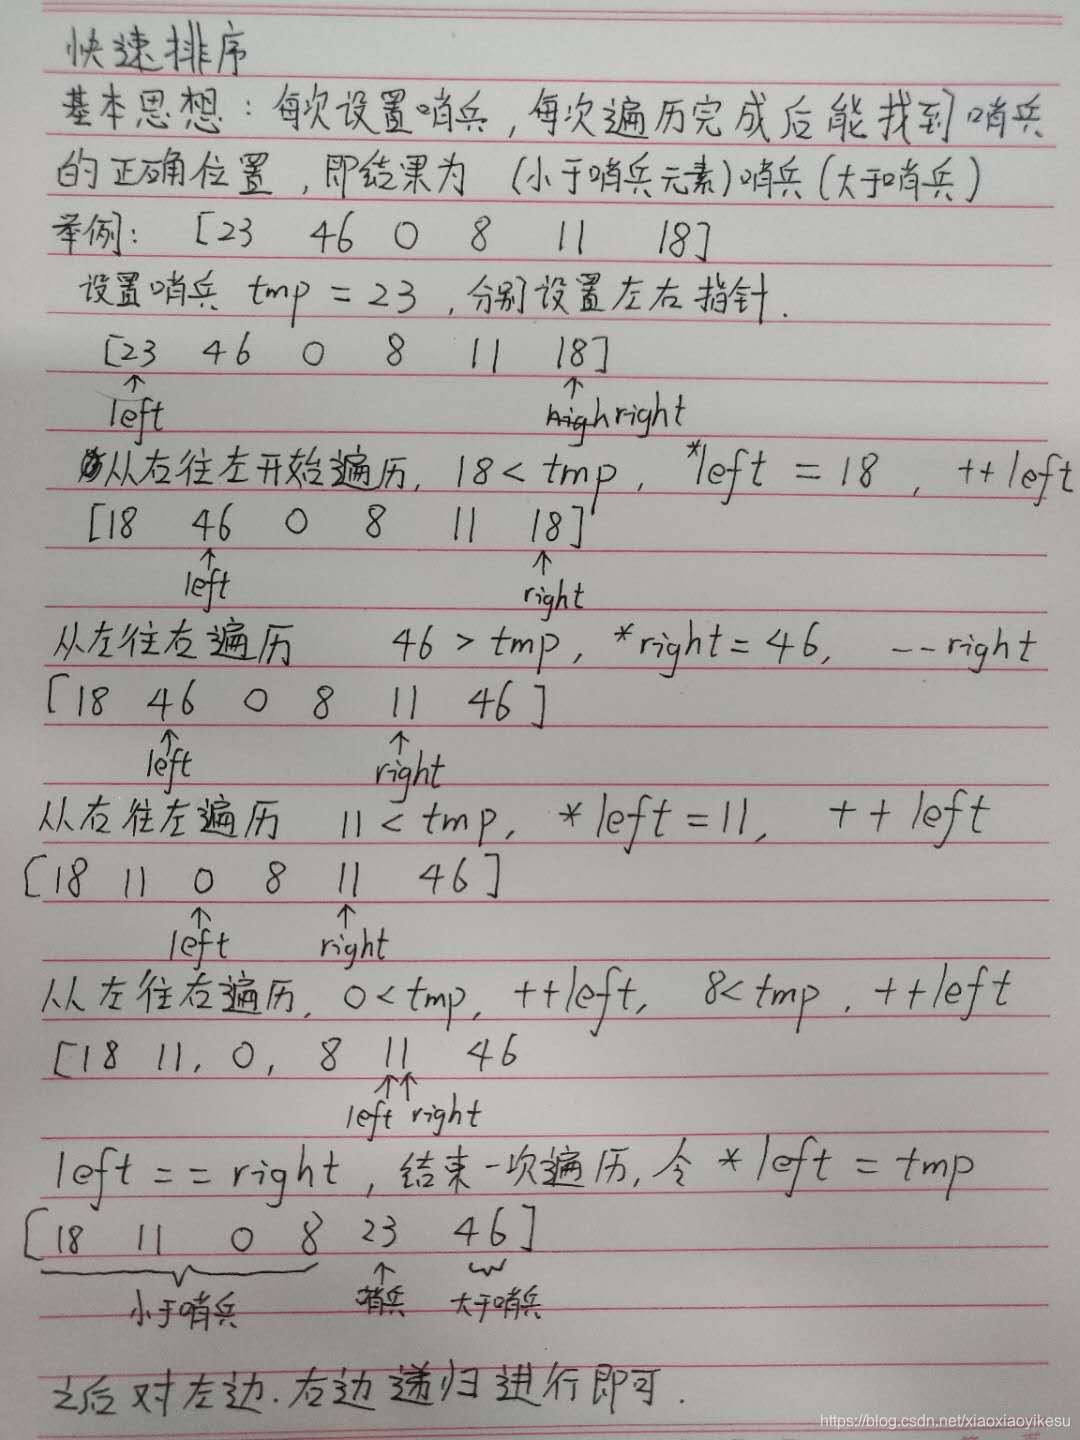 快速排序
基本思想：每次设置哨兵，每次遍历完成后能找到哨兵
的正确位置，即结果为 (小于哨兵元素)哨兵(大于哨兵)
举例： [23 46 0 8 11 18]
设置哨兵 tmp = 23，分别设置左右指针.
[23 46 0 8 11 18]
↑ ↑
left right
从右往左开始遍历, 18 < tmp, *left = 18, ++left
[18 46 0 8 11 18]
↑ ↑
left right
从左往右遍历 46 > tmp, *right = 46, --right
[18 46 0 8 11 46]
↑ ↑
left right
从右往左遍历 11 < tmp, *left = 11, ++left
[18 11 0 8 11 46]
↑ ↑
left right
从左往右遍历, 0 < tmp, ++left, 8 < tmp, ++left
[18 11, 0, 8 11 46
↑↑
left right
left == right, 结束一次遍历, 令 *left = tmp
[18 11 0 8 23 46]
↑
小于哨兵 哨兵 大于哨兵
之后对左边.右边递归进行即可.
https://blog.csdn.net/xiaoxiaoyikesu